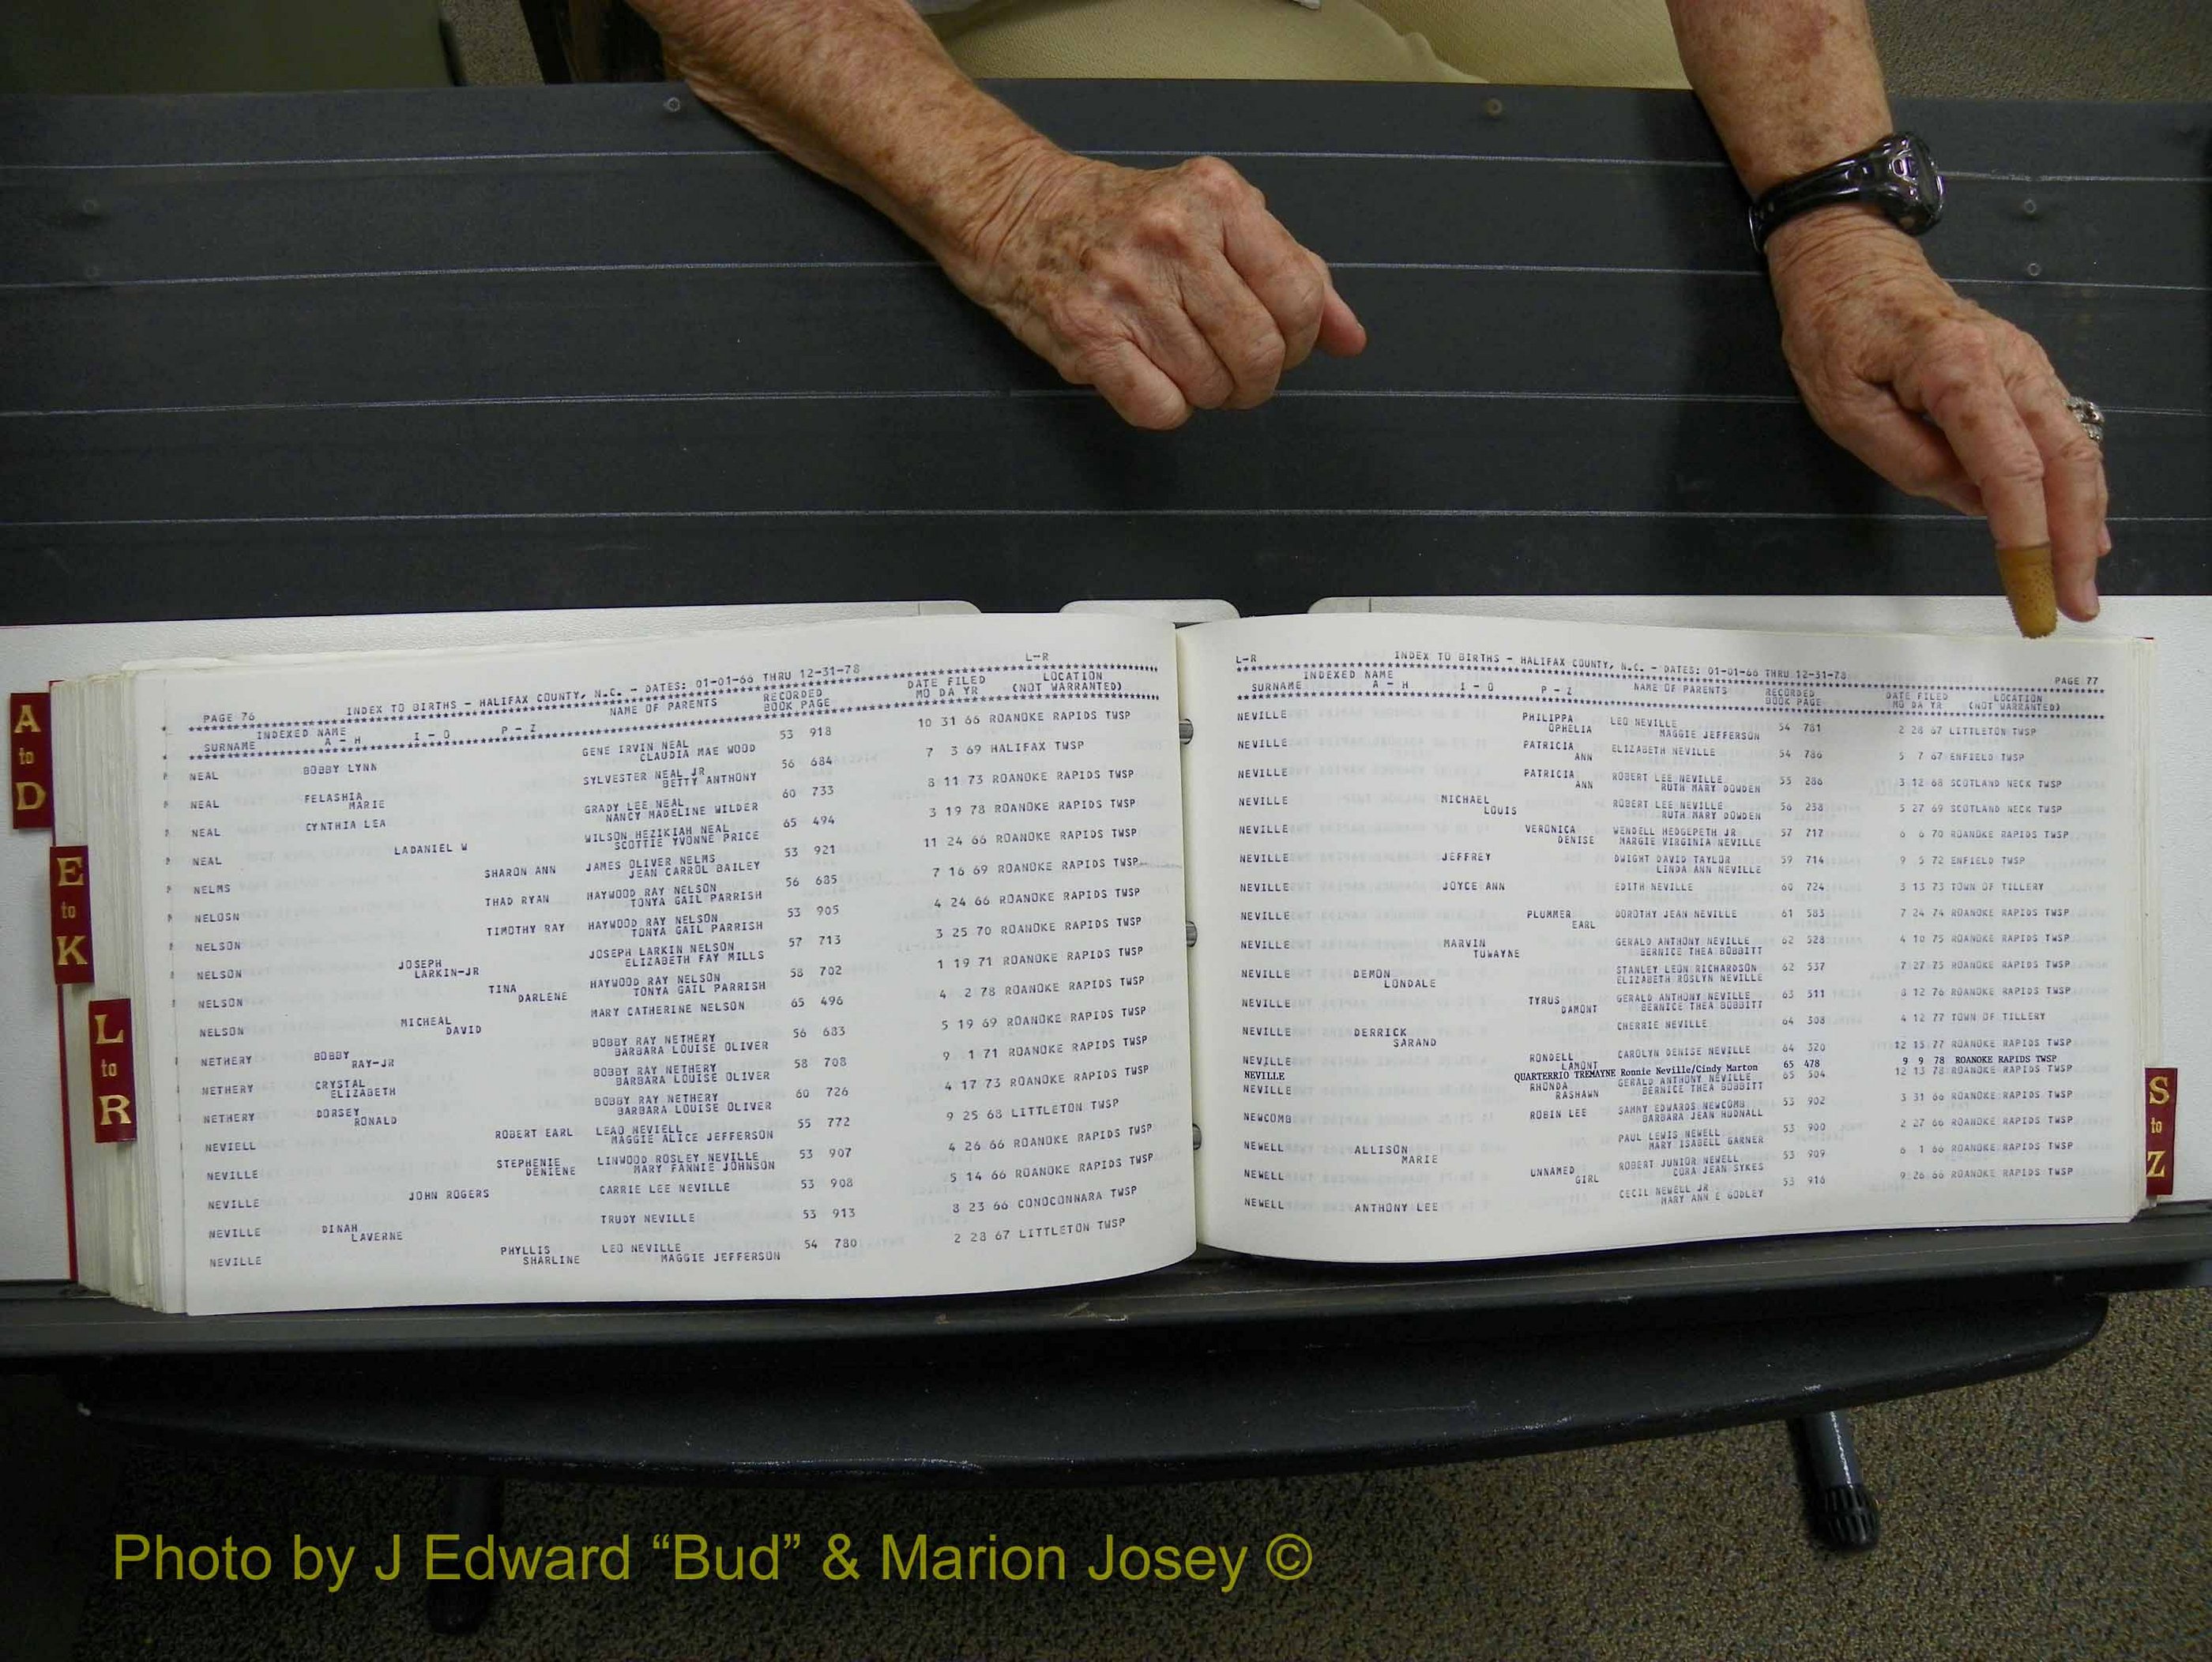 A
to
D
E
to
K
L
to
R
L-R
PAGE 76 INDEX TO BIRTHS - HALIFAX COUNTY, N.C. - DATES: 01-01-66 THRU 12-31-78
INDEXED NAME NAME OF PARENTS RECORDED DATE FILED LOCATION
SURNAME A - H I - O P - Z BOOK PAGE MO DA YR (NOT WARRANTED)
NEAL BOBBY LYNN GENE IRVIN NEAL 53 918 10 31 66 ROANOKE RAPIDS TWSP
CLAUDIA MAE WOOD
NEAL FELASHIA SYLVESTER NEAL JR 56 684 7 3 69 HALIFAX TWSP
MARIE BETTY ANTHONY
NEAL CYNTHIA LEA GRADY LEE NEAL 60 733 8 11 73 ROANOKE RAPIDS TWSP
NANCY MADELINE WILDER
NEAL LADANIEL W WILSON HEZIKIAH NEAL 65 494 3 19 78 ROANOKE RAPIDS TWSP
SCOTTIE YVONNE PRICE
NELMS SHARON ANN JAMES OLIVER NELMS 53 921 11 24 66 ROANOKE RAPIDS TWSP
JEAN CARROL BAILEY
NELOSN THAD RYAN HAYWOOD RAY NELSON 56 685 7 16 69 ROANOKE RAPIDS TWSP
TONYA GAIL PARRISH
NELSON TIMOTHY RAY HAYWOOD RAY NELSON 53 905 4 24 66 ROANOKE RAPIDS TWSP
TONYA GAIL PARRISH
NELSON JOSEPH JOSEPH LARKIN NELSON 57 713 3 25 70 ROANOKE RAPIDS TWSP
LARKIN-JR ELIZABETH FAY MILLS
NELSON TINA HAYWOOD RAY NELSON 58 702 1 19 71 ROANOKE RAPIDS TWSP
DARLENE TONYA GAIL PARRISH
NELSON MICHEAL MARY CATHERINE NELSON 65 496 4 2 78 ROANOKE RAPIDS TWSP
DAVID
NETHERY BOBBY BOBBY RAY NETHERY 56 683 5 19 69 ROANOKE RAPIDS TWSP
RAY-JR BARBARA LOUISE OLIVER
NETHERY CRYSTAL BOBBY RAY NETHERY 58 708 9 1 71 ROANOKE RAPIDS TWSP
ELIZABETH BARBARA LOUISE OLIVER
NETHERY DORSEY BOBBY RAY NETHERY 60 726 4 17 73 ROANOKE RAPIDS TWSP
RONALD BARBARA LOUISE OLIVER
NEVIELL ROBERT EARL LEAO NEVIELL 55 772 9 25 68 LITTLETON TWSP
MAGGIE ALICE JEFFERSON
NEVILLE STEPHENIE LINWOOD ROSLEY NEVILLE 53 907 4 26 66 ROANOKE RAPIDS TWSP
DENIENE MARY FANNIE JOHNSON
NEVILLE JOHN ROGERS CARRIE LEE NEVILLE 53 908 5 14 66 ROANOKE RAPIDS TWSP
NEVILLE DINAH TRUDY NEVILLE 53 913 8 23 66 CONOCONNARA TWSP
LAVERNE
NEVILLE PHYLLIS LEO NEVILLE 54 780 2 28 67 LITTLETON TWSP
SHARLINE MAGGIE JEFFERSON
L-R INDEX TO BIRTHS - HALIFAX COUNTY, N.C. - DATES: 01-01-66 THRU 12-31-78 PAGE 77
INDEXED NAME NAME OF PARENTS RECORDED DATE FILED LOCATION
SURNAME A - H I - O P - Z BOOK PAGE MO DA YR (NOT WARRANTED)
NEVILLE PHILIPPA LEO NEVILLE 54 781 2 28 67 LITTLETON TWSP
OPHELIA MAGGIE JEFFERSON
NEVILLE PATRICIA ELIZABETH NEVILLE 54 786 5 7 67 ENFIELD TWSP
ANN
NEVILLE PATRICIA ROBERT LEE NEVILLE 55 286 3 12 68 SCOTLAND NECK TWSP
ANN RUTH MARY DOWDEN
NEVILLE MICHAEL ROBERT LEE NEVILLE 56 238 5 27 69 SCOTLAND NECK TWSP
LOUIS RUTH MARY DOWDEN
NEVILLE VERONICA WENDELL HEDGEPETH JR 57 717 6 6 70 ROANOKE RAPIDS TWSP
DENISE MARGIE VIRGINIA NEVILLE
NEVILLE JEFFREY DWIGHT DAVID TAYLOR 59 714 9 5 72 ENFIELD TWSP
LINDA ANN NEVILLE
NEVILLE JOYCE ANN EDITH NEVILLE 60 724 3 13 73 TOWN OF TILLERY
NEVILLE PLUMMER DOROTHY JEAN NEVILLE 61 583 7 24 74 ROANOKE RAPIDS TWSP
EARL
NEVILLE MARVIN GERALD ANTHONY NEVILLE 62 528 4 10 75 ROANOKE RAPIDS TWSP
TOWAYNE BERNICE THEA BOBBITT
NEVILLE DEMON STANLEY LEON RICHARDSON 62 537 7 27 75 ROANOKE RAPIDS TWSP
LONDALE ELIZABETH ROSLYN NEVILLE
NEVILLE TYRUS GERALD ANTHONY NEVILLE 63 511 8 12 76 ROANOKE RAPIDS TWSP
DAMONT BERNICE THEA BOBBITT
NEVILLE DERRICK CHERRIE NEVILLE 64 308 4 12 77 TOWN OF TILLERY
SARAND
NEVILLE RONDELL CAROLYN DENISE NEVILLE 64 320 12 15 77 ROANOKE RAPIDS TWSP
LAMONT
NEVILLE QUARTERRIO TREMAYNE Ronnie Neville/Cindy Marton 65 478 9 9 78 ROANOKE RAPIDS TWSP
NEVILLE RHONDA GERALD ANTHONY NEVILLE 65 504 12 13 78 ROANOKE RAPIDS TWSP
RASHAWN BERNICE THEA BOBBITT
NEWCOMB ROBIN LEE SAMMY EDWARDS NEWCOMB 53 902 3 31 66 ROANOKE RAPIDS TWSP
BARBARA JEAN HUDNALL
NEWELL ALLISON PAUL LEWIS NEWELL 53 900 2 27 66 ROANOKE RAPIDS TWSP
MARIE MARY ISABELL GARNER
NEWELL UNNAMED ROBERT JUNIOR NEWELL 53 909 6 1 66 ROANOKE RAPIDS TWSP
GIRL CORA JEAN SYKES
NEWELL ANTHONY LEE CECIL NEWELL JR 53 916 9 26 66 ROANOKE RAPIDS TWSP
MARY ANN E GODLEY
S
to
Z
Photo by J Edward “Bud” & Marion Josey ©